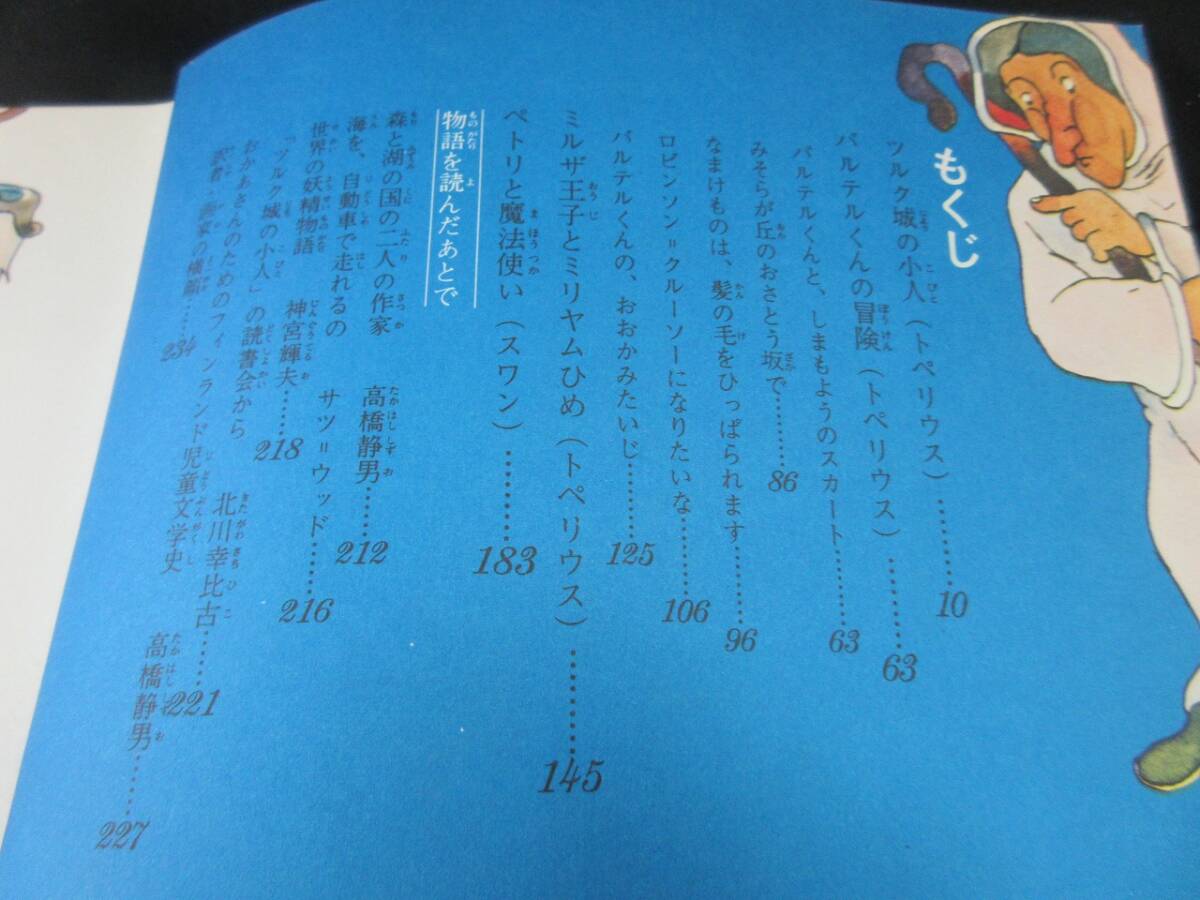 もくじ
ツルク城の小人（トペリウス）……………10
バルテルくんの冒険（トペリウス）…………63
バルテルくんと、しまもようのスカート…………63
みそらが丘のおさとう坂で…………86
なまけものは、髪の毛をひっぱられます…………96
ロビンソン＝クルーソーになりたいな…………106
バルテルくんの、おおかみたいじ…………125
ミルザ王子とミリヤムひめ（トペリウス）…………145
ペトリと魔法使い（スワン）…………183
物語を読んだあとで
森と湖の国の二人の作家　高橋静男………212
海を、自動車で走れるの　サツ＝ウッド………216
世界の妖精物語　神宮輝夫………218
「ツルク城の小人」の読書会から　北川幸比古………221
おかあさんのためのフィンランド児童文学史　高橋静男………227
訳者・画家の横顔……234